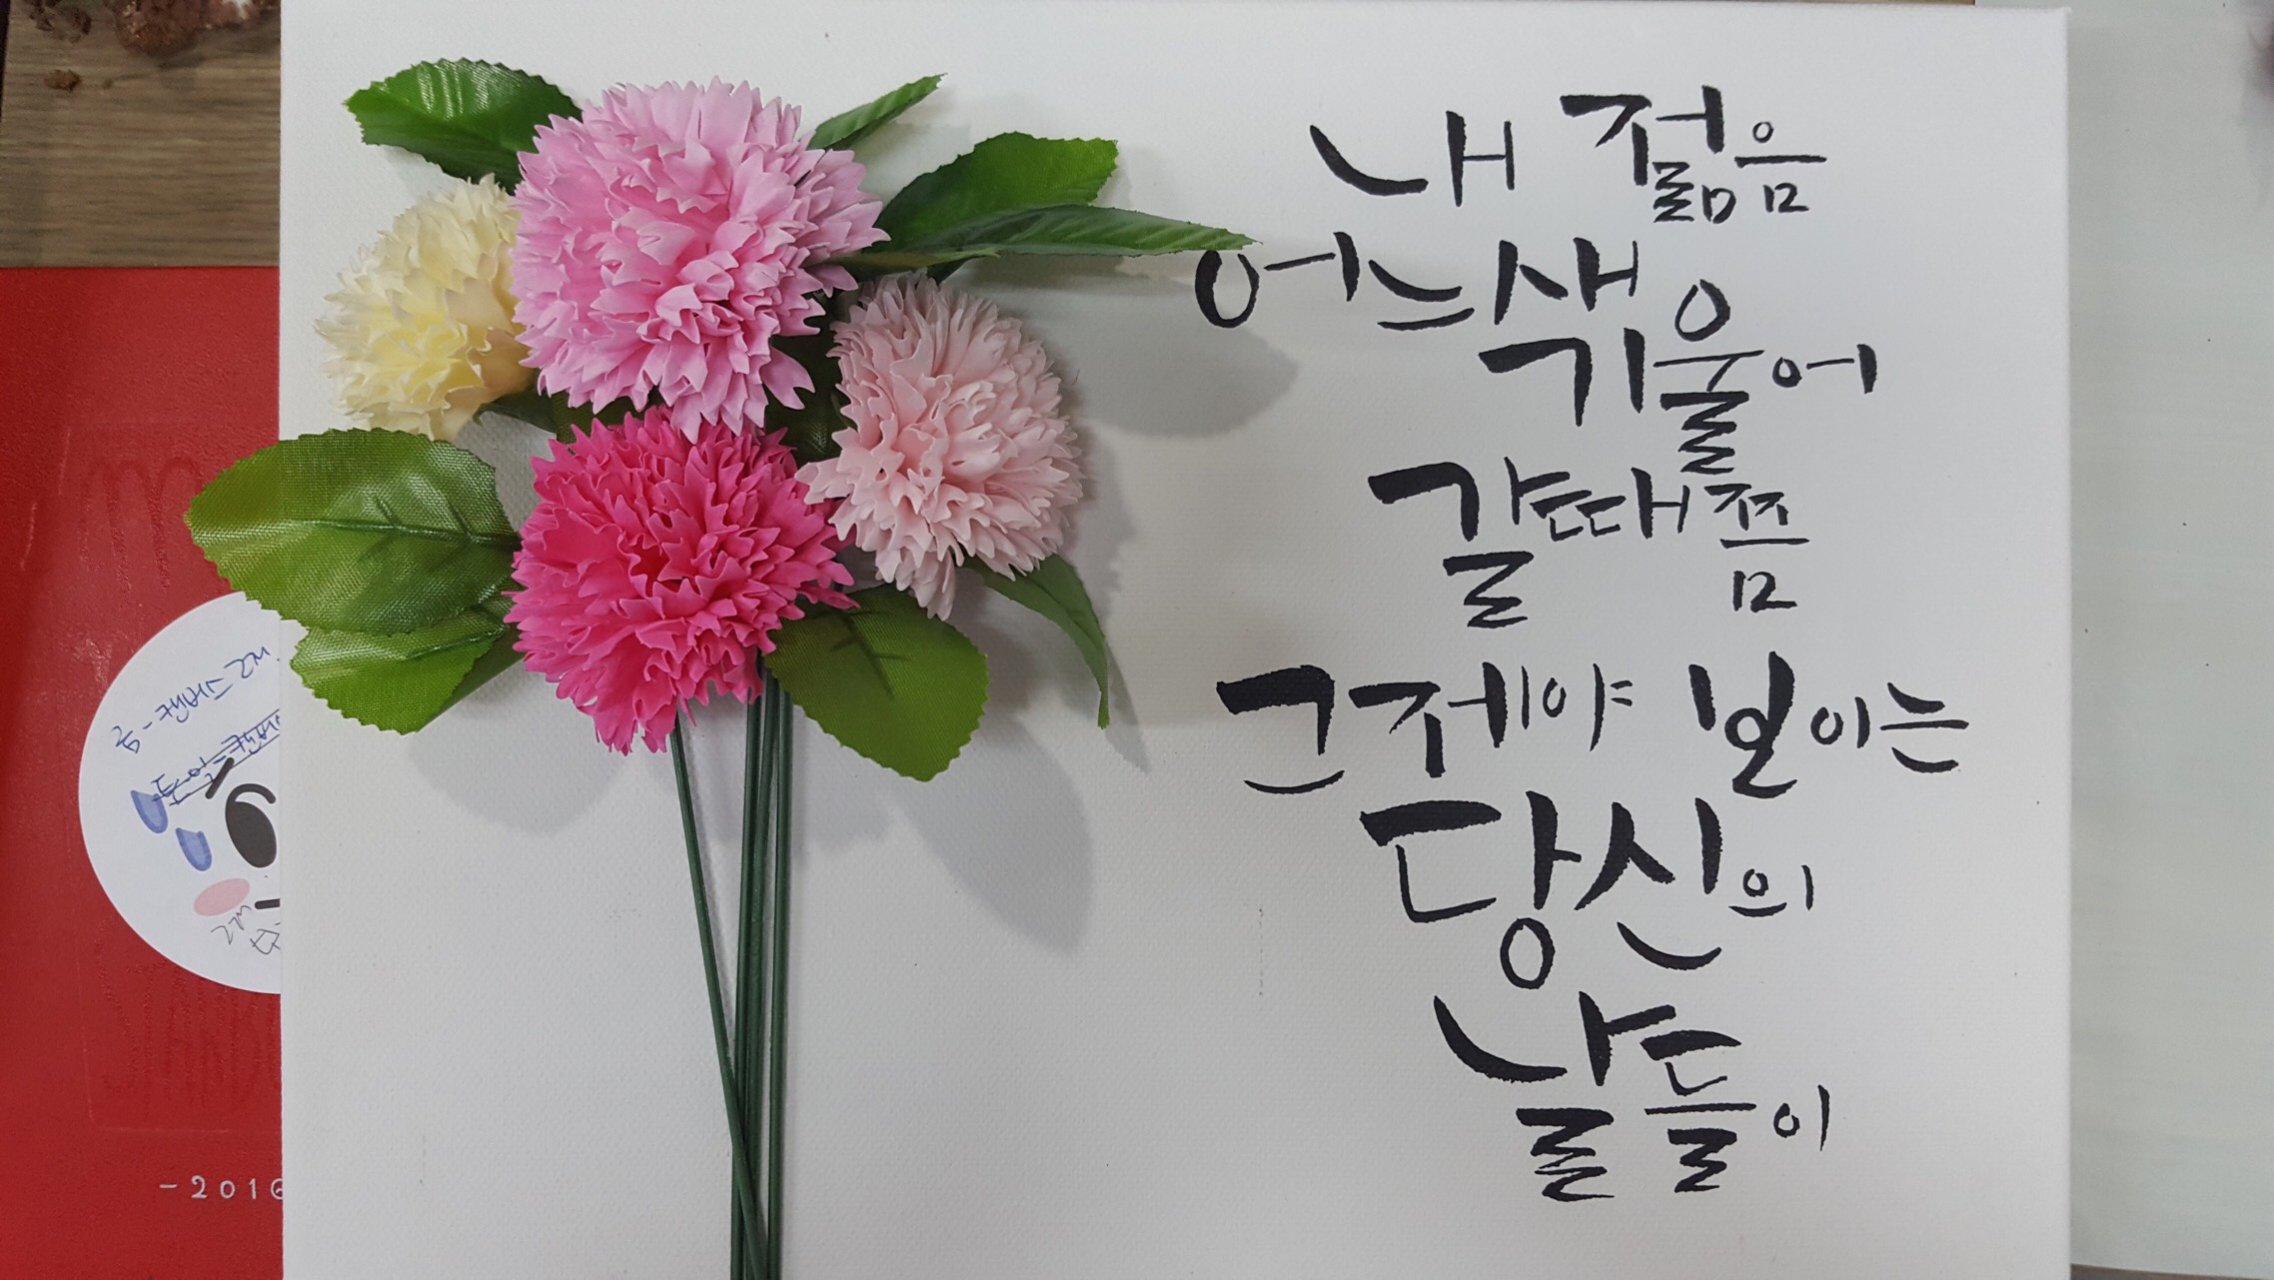 내 젊음
어느새
기울어
갈때쯤
그제야 보이는
당신의
날들이
-2016